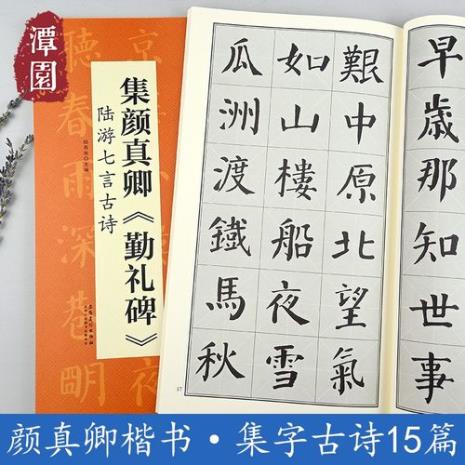 潭園
集颜真卿《勤礼碑》
陆游七言古诗
聽春雨深巷明
早歲那知世事
艱中原北望氣
如山樓船夜雪
瓜洲渡鐵馬秋
颜真卿楷书·集字古诗15篇